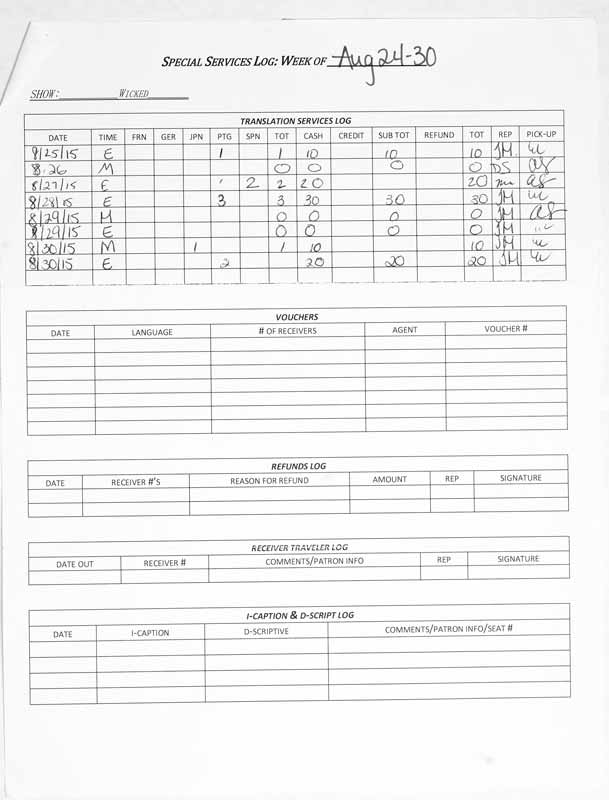 SPECIAL SERVICES LOG: WEEK OF Aug 24-30
SHOW: WICKED
TRANSLATION SERVICES LOG
DATE TIME FRN GER JPN PTG SPN TOT CASH CREDIT SUB TOT REFUND TOT REP PICK-UP
8/25/15 E 1 1 10 10 10 JM
8.26 M 0 0 0 0 DS AS
8/27/15 E 2 2 20 20 AS
8/28/15 E 3 3 30 30 30 JM
8/29/15 M 0 0 0 0 JM AS
8/29/15 E 0 0 0 0 JM
8/30/15 M 1 1 10 10 JM
8/30/15 E 2 20 20 20 JM
VOUCHERS
DATE LANGUAGE # OF RECEIVERS AGENT VOUCHER #
REFUNDS LOG
DATE RECEIVER #'S REASON FOR REFUND AMOUNT REP SIGNATURE
RECEIVER TRAVELER LOG
DATE OUT RECEIVER # COMMENTS/PATRON INFO REP SIGNATURE
I-CAPTION & D-SCRIPT LOG
DATE I-CAPTION D-SCRIPTIVE COMMENTS/PATRON INFO/SEAT #